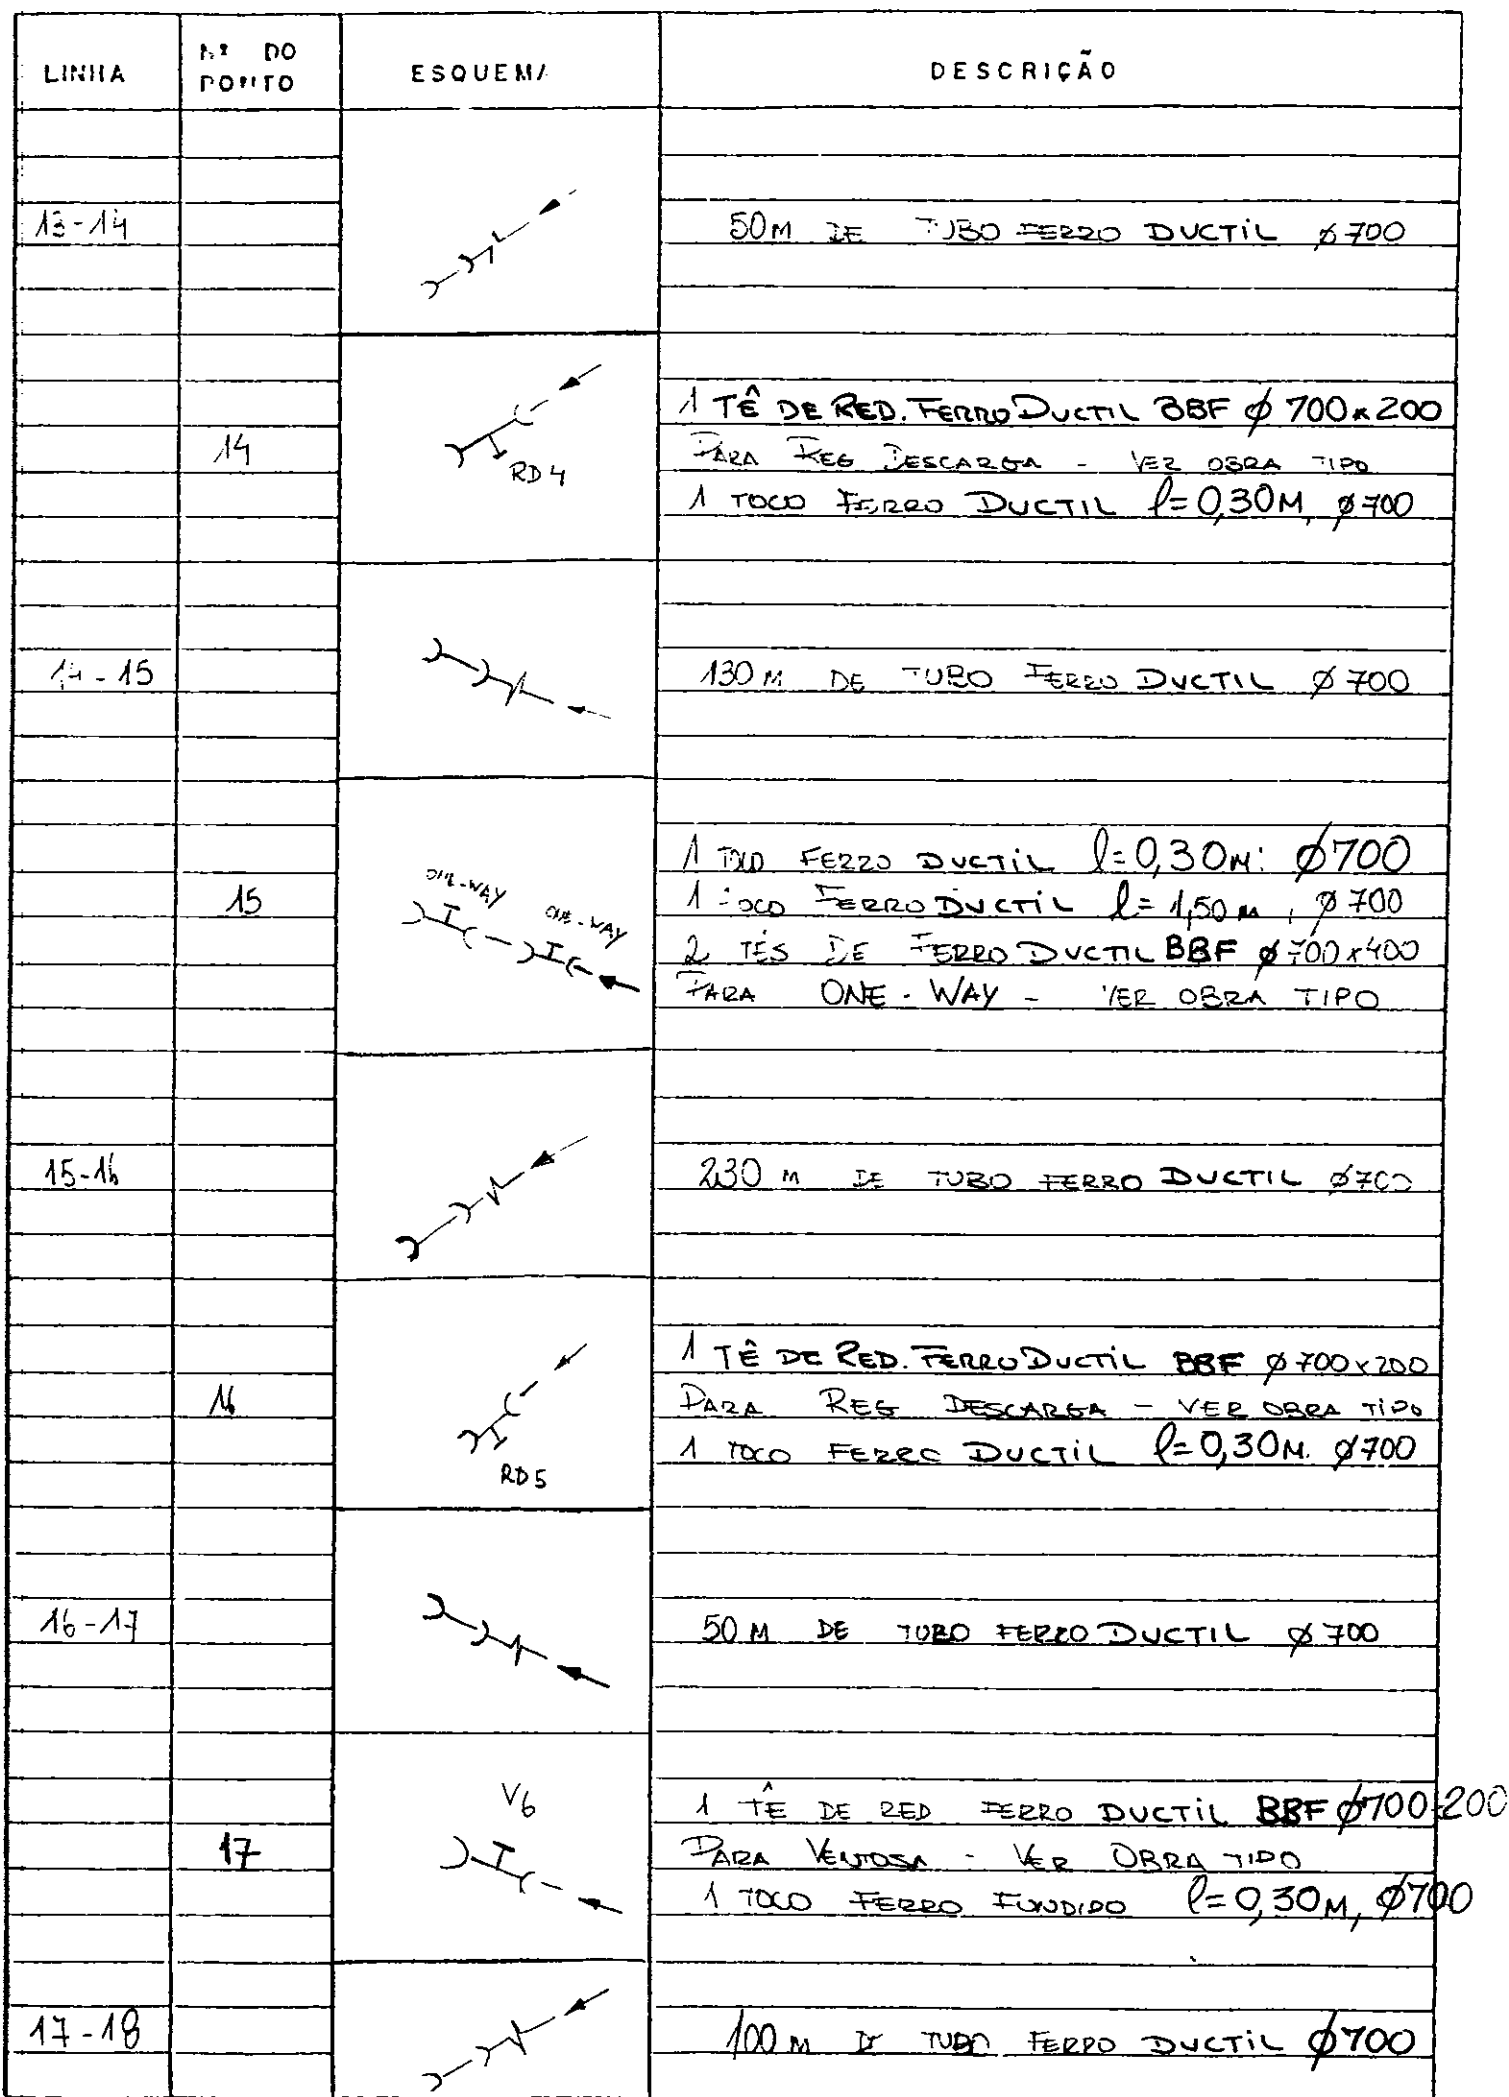 LINHA
Nº DO
PONTO
ESQUEMA
DESCRIÇÃO
13-14
50M DE TUBO FERRO DUCTIL Ø 700
14
RD4
1 TÊ DE RED. FERRO DUCTIL BBF Ø 700x200
PARA REG DESCARGA - VER OBRA TIPO
1 TOCO FERRO DUCTIL l=0,30M, Ø700
14-15
130 M DE TUBO FERRO DUCTIL Ø 700
15
ONE-WAY
ONE-WAY
1 TOCO FERRO DUCTIL l=0,30M: Ø700
1 TOCO FERRO DUCTIL l=1,50 M, Ø 700
2 TÉS DE FERRO DUCTIL BBF Ø 700x400
PARA ONE-WAY - VER OBRA TIPO
15-16
230 M DE TUBO FERRO DUCTIL Ø700
16
RD5
1 TÊ DE RED. FERRO DUCTIL BBF Ø 700x200
PARA REG DESCARGA - VER OBRA TIPO
1 TOCO FERRO DUCTIL l=0,30M. Ø700
16-17
50 M DE TUBO FERRO DUCTIL Ø 700
17
V6
1 TÊ DE RED FERRO DUCTIL BBF Ø700x200
PARA VENTOSA - VER OBRA TIPO
1 TOCO FERRO FUNDIDO l=0,30M, Ø700
17-18
100 M DE TUBO FERRO DUCTIL Ø700